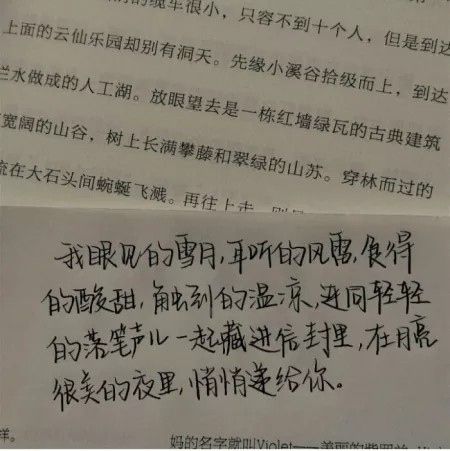 的缆车很小，只容不到十个人，但是到达
上面的云仙乐园却别有洞天。先缘小溪谷拾级而上，到达
拦水做成的人工湖。放眼望去是一栋红墙绿瓦的古典建筑
宽阔的山谷，树上长满攀藤和翠绿的山苏。穿林而过的
流在大石头间蜿蜒飞溅。再往上走，则
我眼见的雪月，耳听的风雷，食得
的酸甜，触到的温凉，连同轻轻
的落笔声儿一起藏进信封里，在月亮
很美的夜里，悄悄递给你。
样。
妈的名字就叫Violet——美丽的紫罗兰